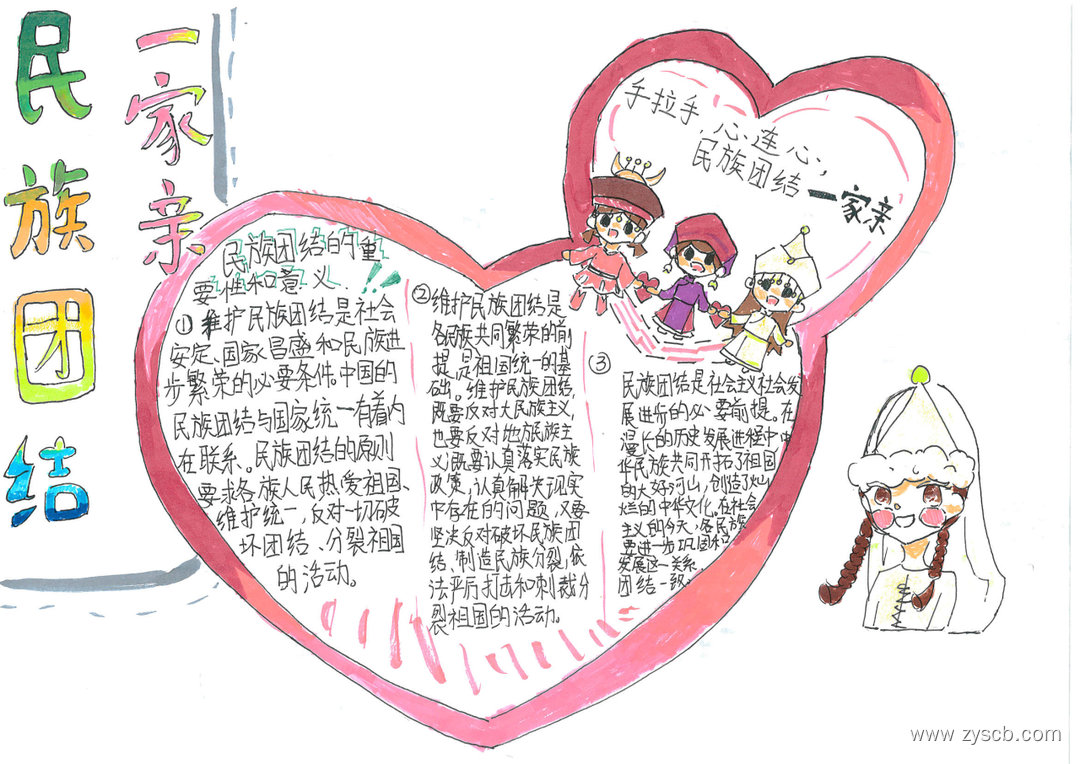 民族团结
一家亲
手拉手,心连心,
民族团结一家亲
民族团结的重
要性和意义!!
①维护民族团结是社会
安定、国家昌盛和民族进
步繁荣的必要条件。中国的
民族团结与国家统一有着内
在联系。民族团结的原则
要求各族人民热爱祖国、
维护统一,反对一切破
坏团结、分裂祖国
的活动。
②维护民族团结是
各民族共同繁荣的前
提,是祖国统一的基
础。维护民族团结,
既要反对大民族主义,
也要反对地方民族主
义;既要认真落实民族
政策,认真解决现实
中存在的问题,又要
坚决反对破坏民族团
结、制造民族分裂,依
法严厉打击和制裁分
裂祖国的活动。
③
民族团结是社会主义社会发
展进行的必要前提。在
漫长的历史发展进程中中
华民族共同开拓了祖国
的大好河山,创造了灿
烂的中华文化。在社会
主义的今天,各民族
要进一步巩固和
发展这一关系,
团结一致。
www.zyscb.com